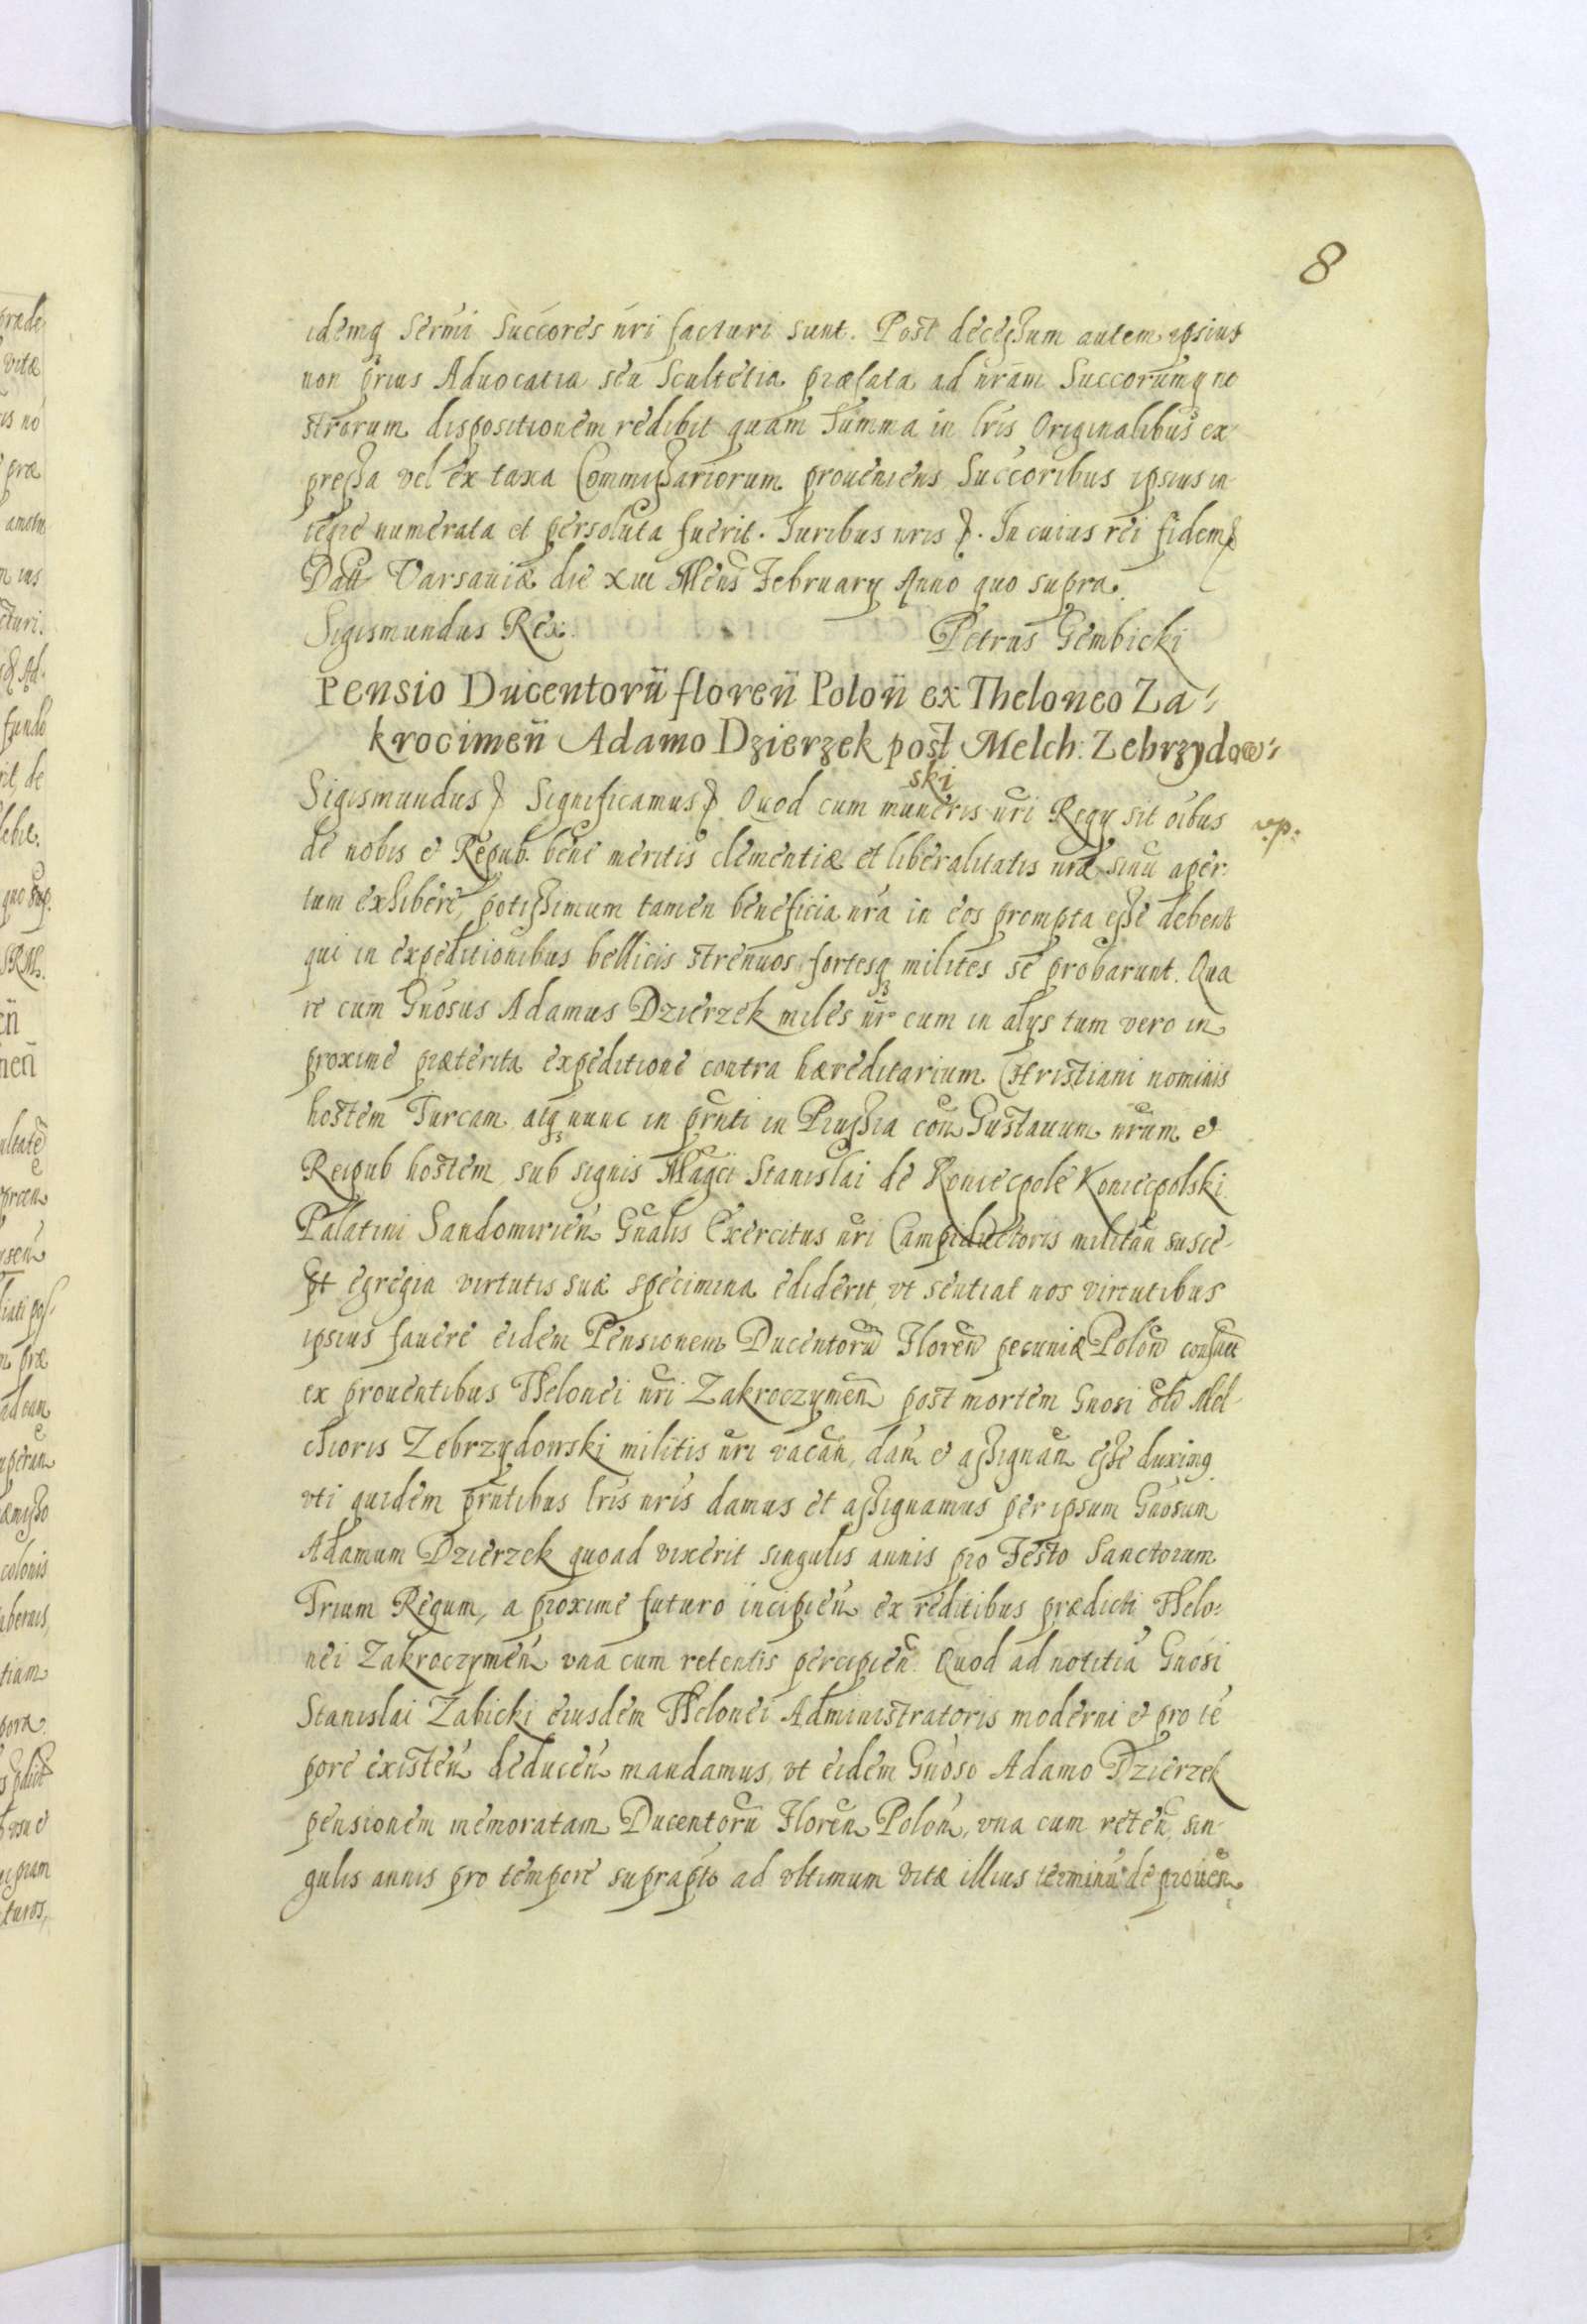 8
idemq Sermi Succores nri facturi sunt. Post decessum autem ipsius
non prius Aduocatia seu Scultetia præfata ad nram Succorumq no
strorum dispositionem redibit quam Summa in lris Originalibus ex
pressa vel ex taxa Commissariorum proueniens Succoribus ipsius in
tegre numerata et persoluta fuerit. Iuribus nris &. In cuius rei fidem &
Datt Varsauiæ die XIII Mens February Anno quo supra.
Sigismundus Rex. Petrus Gembicki
Pensio Ducentorū floreñ Poloñ ex Theloneo Za-
krocimeñ Adamo Dzierzek post Melch: Zebrzydow-
ski
Sigismundus & Significamus &. Quod cum muneris nri Regy sit oibus
v.p.
de nobis et Repub. bene meritis clementiæ et liberalitatis nræ sinū aper-
tum exhibere, potissimum tamen beneficia nra in eos prompta esse debent
qui in expeditionibus bellicis strenuos fortesq milites se probarunt. Qua
re cum Gnosus Adamus Dzierzek miles nr cum in alys tum vero in
proxime præterita expeditione contra hæreditarium Christiani nominis
hostem Turcam atq nunc in prnti in Prussia con Gustauum nrum et
Reipub hostem sub signis Magci Stanislai de Koniecpole Koniecpolski
Palatini Sandomirień Gnalis Exercitus nri Campiductoris militań susce-
pt egregia virtutis suæ specimina ediderit, vt sentiat nos virtutibus
ipsius fauere eidem Pensionem Ducentorū Floreñ pecuniæ Poloñ
ex prouentibus Thelonei nri Zakroczymeñ post mortem Gnosi olo Mel-
chioris Zebrzydowski militis nri vacań, dań et assignań esse duximq
vti quidem prntibus lris nris damus et assignamus per ipsum Gnosum
Adamum Dzierzek quoad vixerit singulis annis pro Festo Sanctorum
Trium Regum, a proxime futuro incipień ex reditibus prædicti Thelo-
nei Zakroczymeń vna cum retentis percipień. Quod ad notitiā Gnosi
Stanislai Zabicki eiusdem Thelonei Administratoris moderni et pro tē
pore existeń deduceń mandamus, vt eidem Gnoso Adamo Dzierzek
pensionem memoratam Ducentorū Floreń Poloń, vna cum reteń sin-
gulis annis pro tempore suprapto ad vltimum vitæ illius terminū de prouen